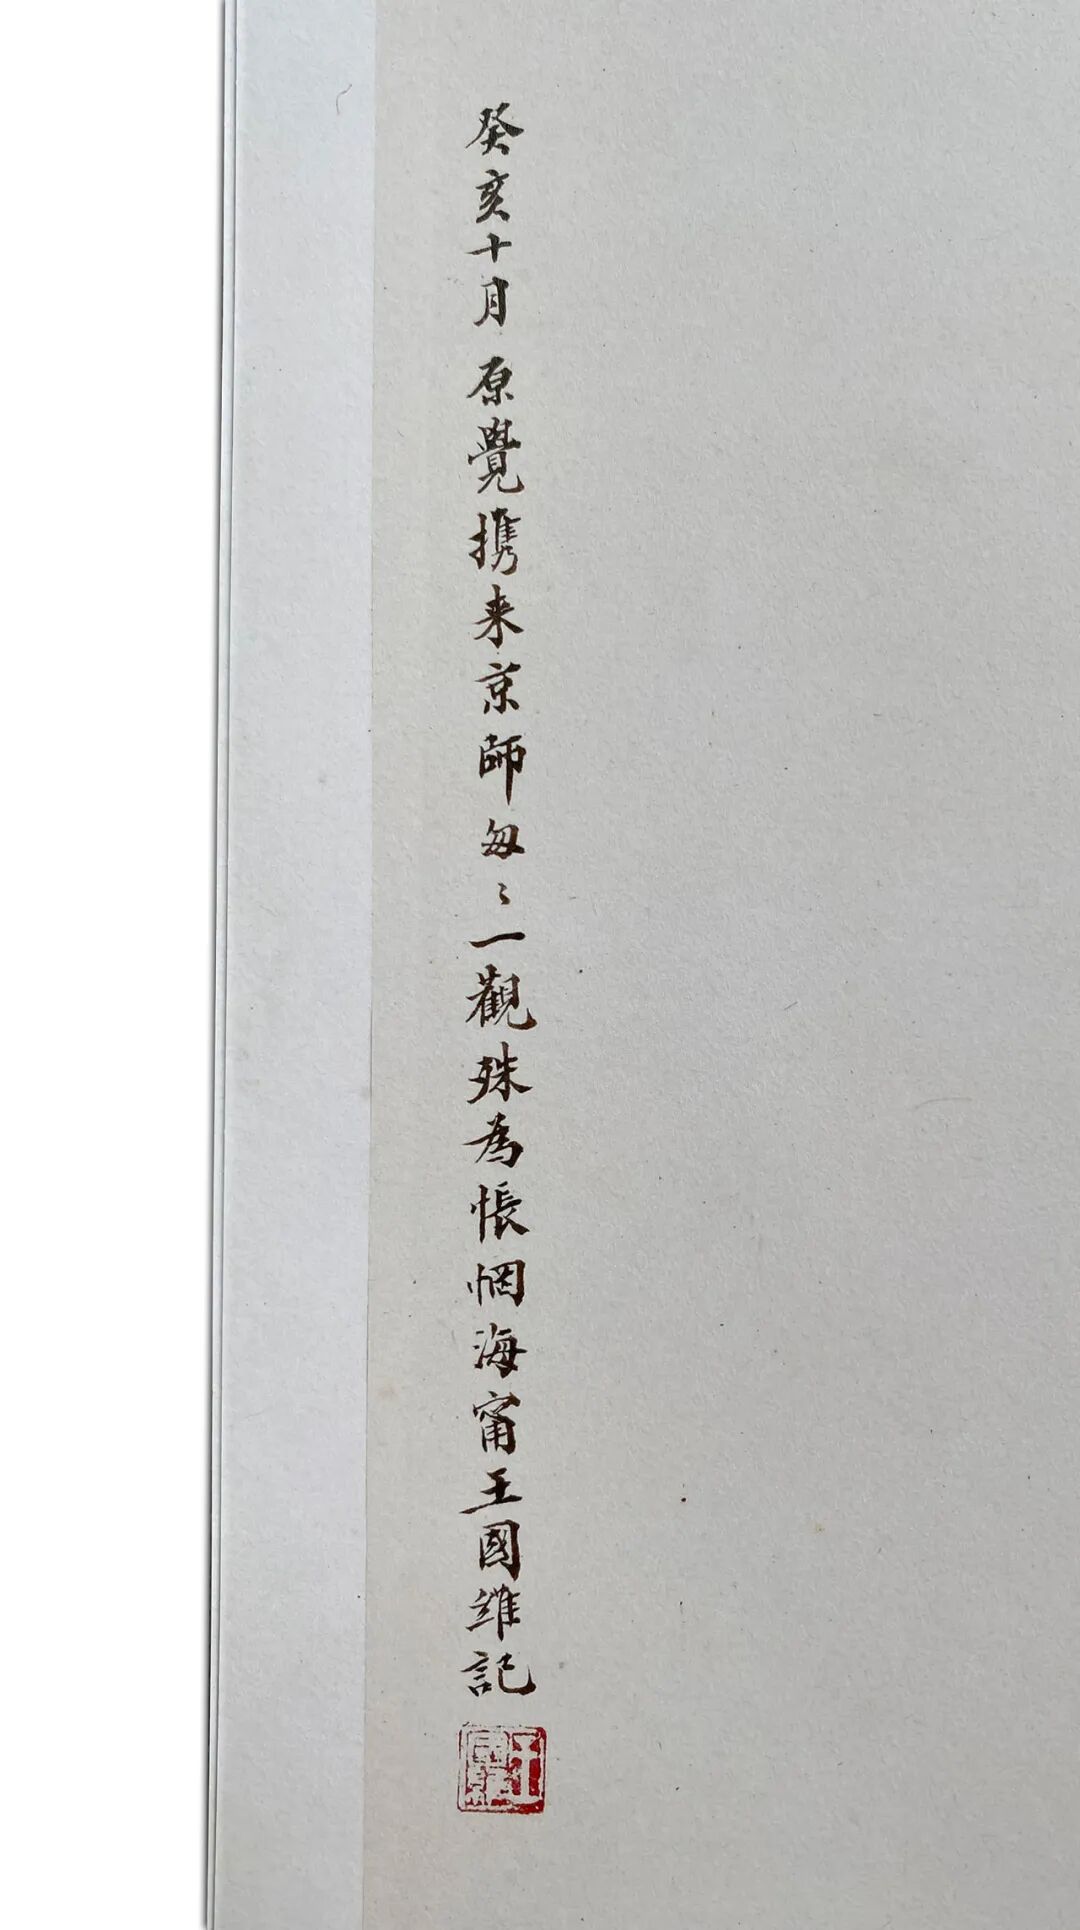 癸亥十月原覺携来京師匆〻一觀殊為悵惘海甯王國維記
王國維